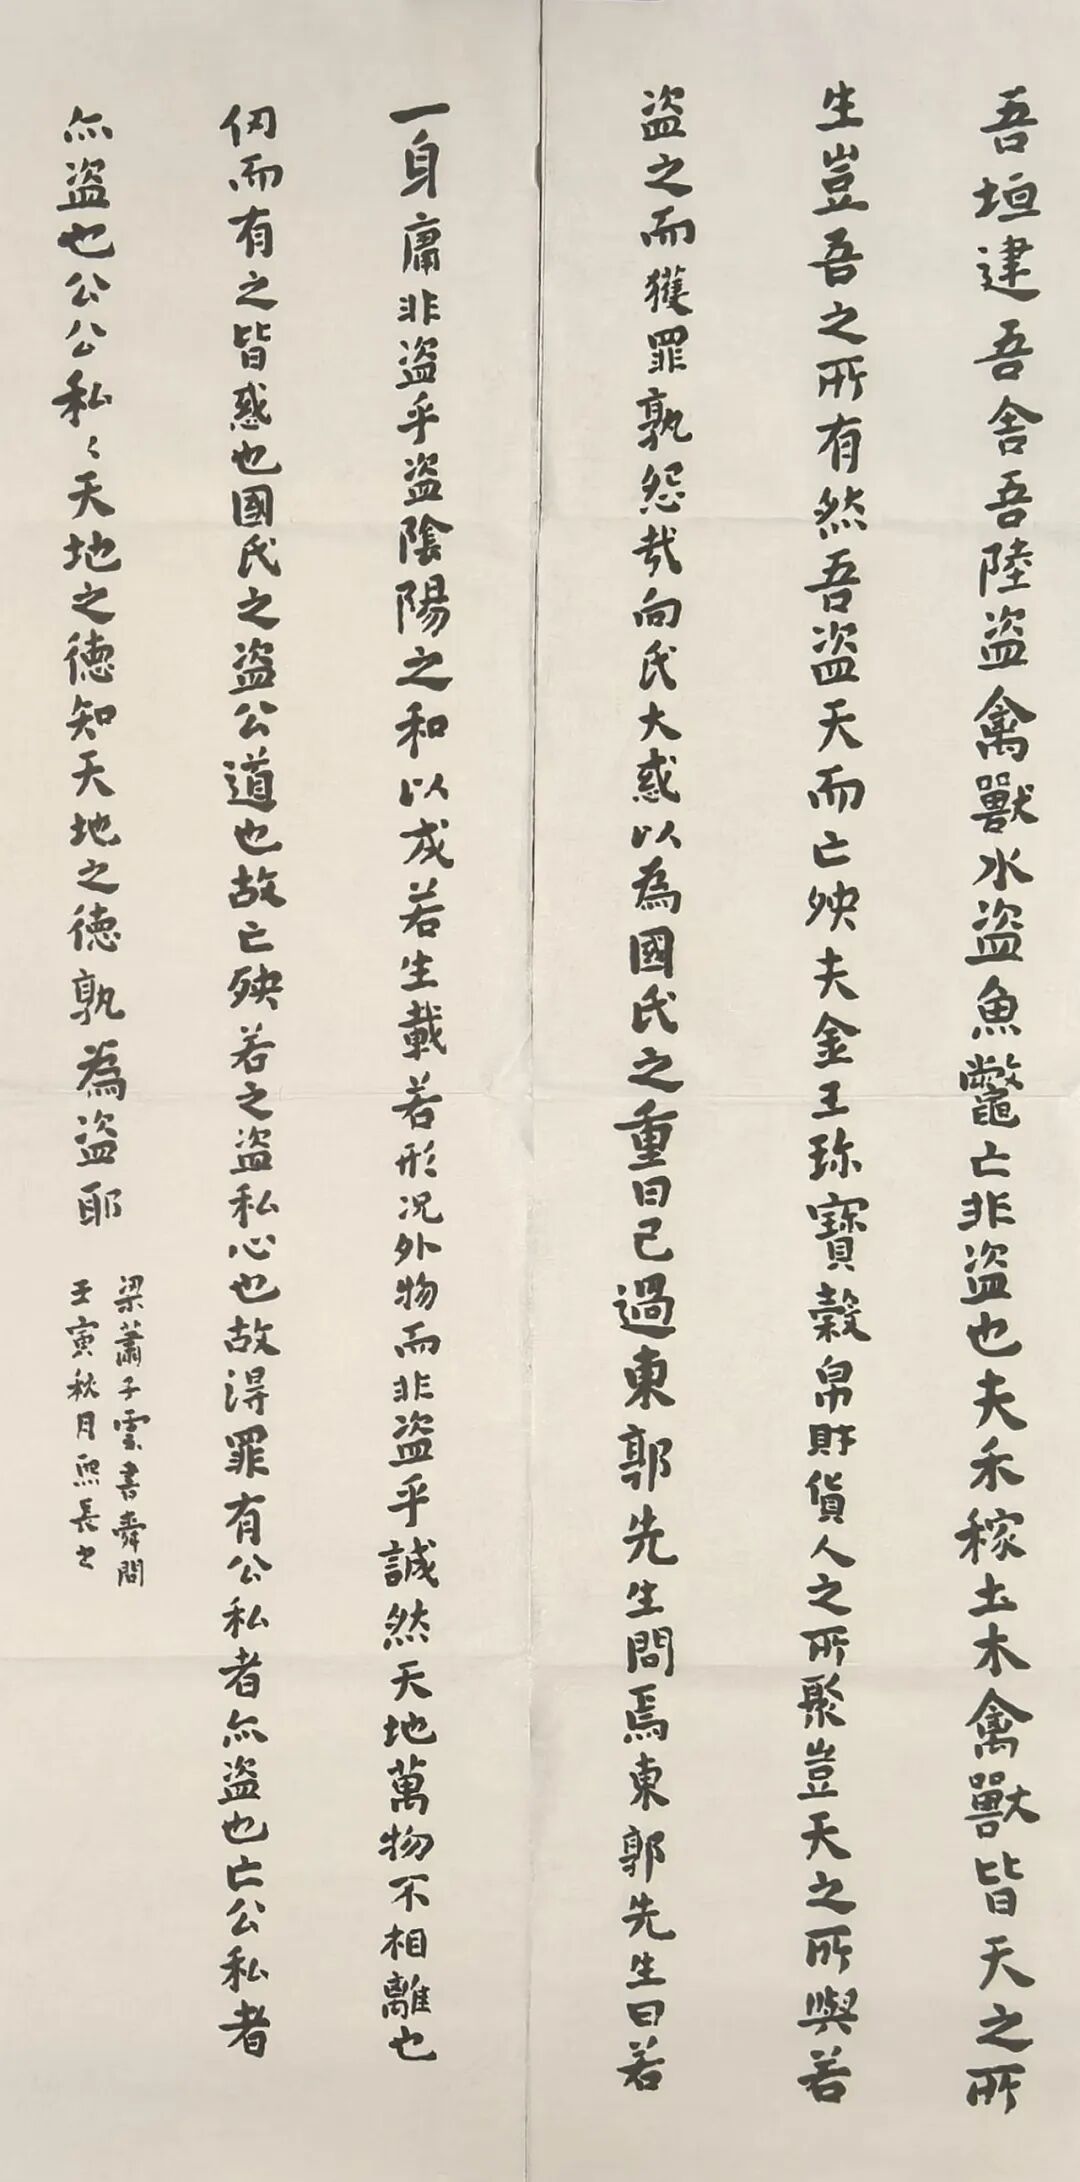 吾垣建吾舍吾陸盜禽獸水盜魚鼈亡非盜也夫禾稼土木禽獸皆天之所
生豈吾之所有然吾盜天而亡殃夫金王珎寶穀帛財貨人之所聚豈天之所與若
盜之而獲罪孰怨哉向氏大惑以為國氏之重曰己過東郭先生問焉東郭先生曰若
一身庸非盜乎盜陰陽之和以成若生載若形况外物而非盜乎誠然天地萬物不相離也
仞而有之皆惑也國氏之盜公道也故亡殃若之盜私心也故得罪有公私者亦盜也亡公私者
亦盜也公公私〻天地之德知天地之德孰為盜耶
梁蕭子雲書舜問
壬寅秋月熙長书